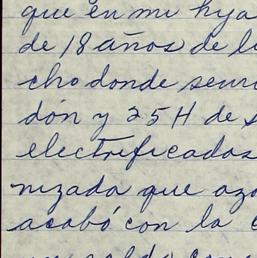 que en mi hya
de 18 años de l
cho donde seur
dón y 25 H de s
electrificadas
nizada que azo
acabó con la
un saldo com